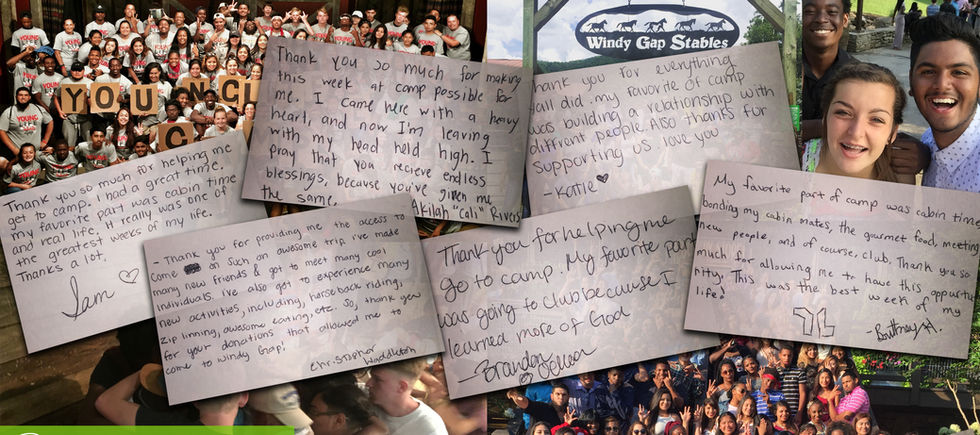 YOUNG
YOUNG
LIFE
YOU N CL
C
Windy Gap Stables
Thank you so much for making
this week at camp possible for
me. I came here with a heavy
heart, and now I'm leaving
with my head held high. I
pray that you recieve endless
blessings, because you've given me
the same.
Akilah "Cali" Rivers
Thank you for everything
yall did. my favorite of camp
was building a relationship with
diffrent people. Also thanks for
supporting us. love you
-Katie ♡
Thank you so much for helping me
get to camp. I had a great time.
my favorite part was cabin time
and real life. It really was one of
the greatest weeks of my life.
Thanks a lot.
Sam ♡
- Thank you for providing me the access to
come on such an awesome trip. I've made
many new friends & got to meet many cool
individuals. I've also got to experience many
new activities, including, horseback riding,
zip linning, awesome eating, etc. So, thank you
for your donations that allowed me to
come to Windy Gap!
Christopher Waddleton
Thank you for helping me
go to camp. My favorite part
was going to club because I
learned more of God
-Brandon
My favorite part of camp was cabin time
bonding my cabin mates, the gourmet food, meeting
new people, and of course, club. Thank you so
much for allowing me to have this opportu
nity. This was the best week of my
life!
-Brittney A.